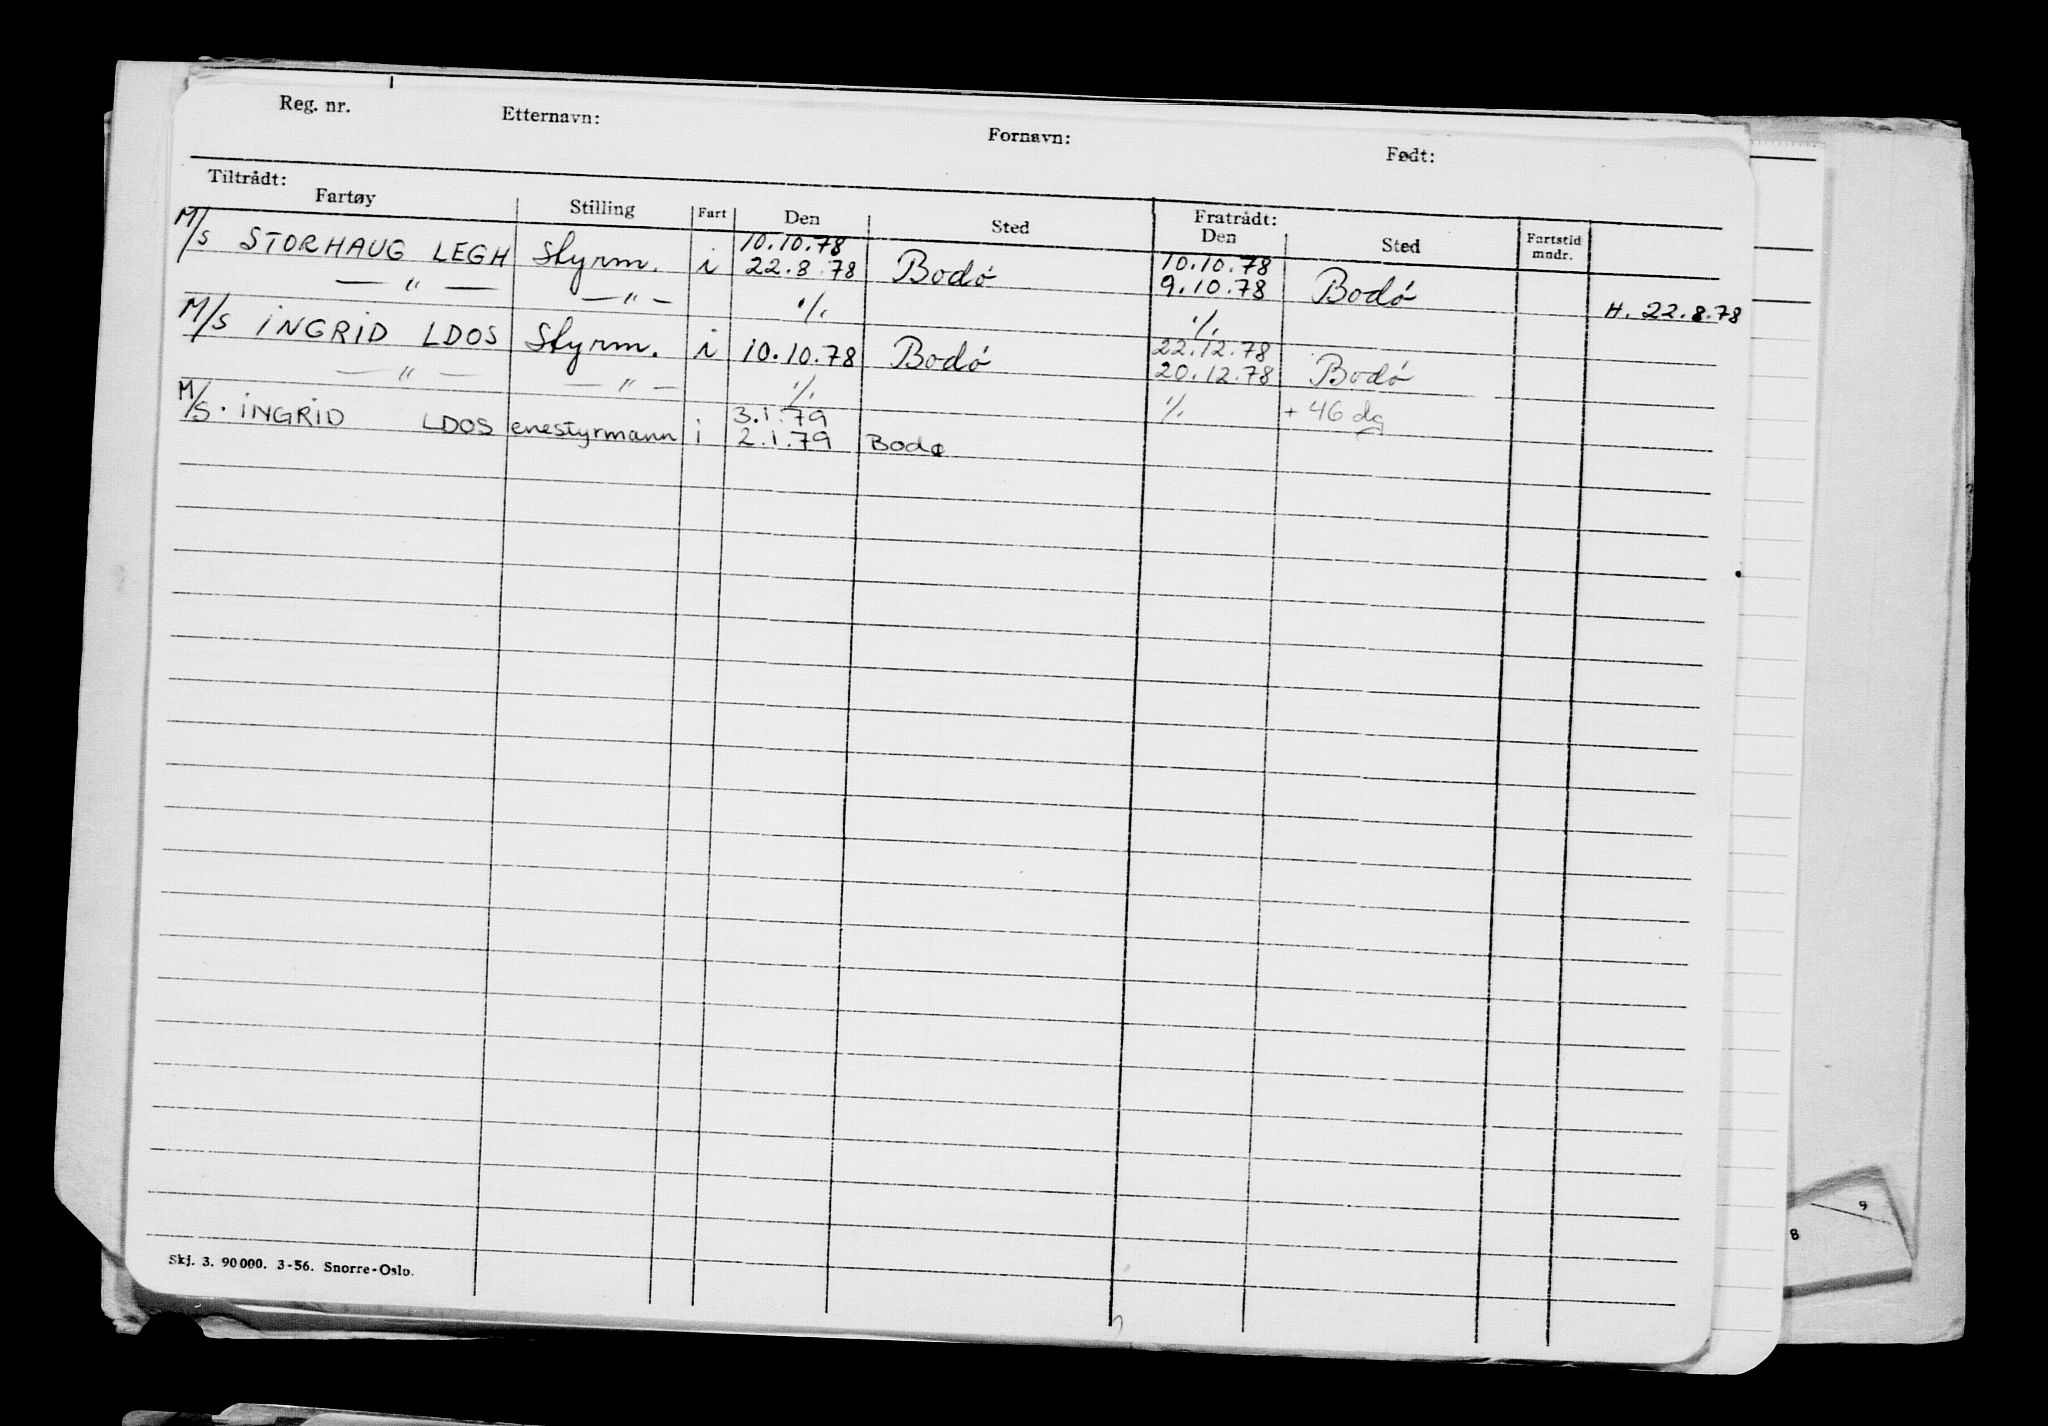 Reg. nr. Etternavn: Fornavn: Født:
Tiltrådt: Fratrådt:
Fartøy Stilling Fart Den Sted Den Sted Fartstid mndr.
10.10.78 10.10.78
M/S STORHAUG LEGH Styrm. i 22.8.78 Bodø 9.10.78 Bodø H. 22.8.78
— " — — " — ./. ./.
22.12.78
M/S INGRID LDOS Styrm. i 10.10.78 Bodø 20.12.78 Bodø
— " — — " — ./. ./. + 46 dg
3.1.79
M/S. INGRID LDOS enestyrmann i 2.1.79 Bodø
Skj. 3. 90 000. 3-56. Snorre-Oslo.
8
9